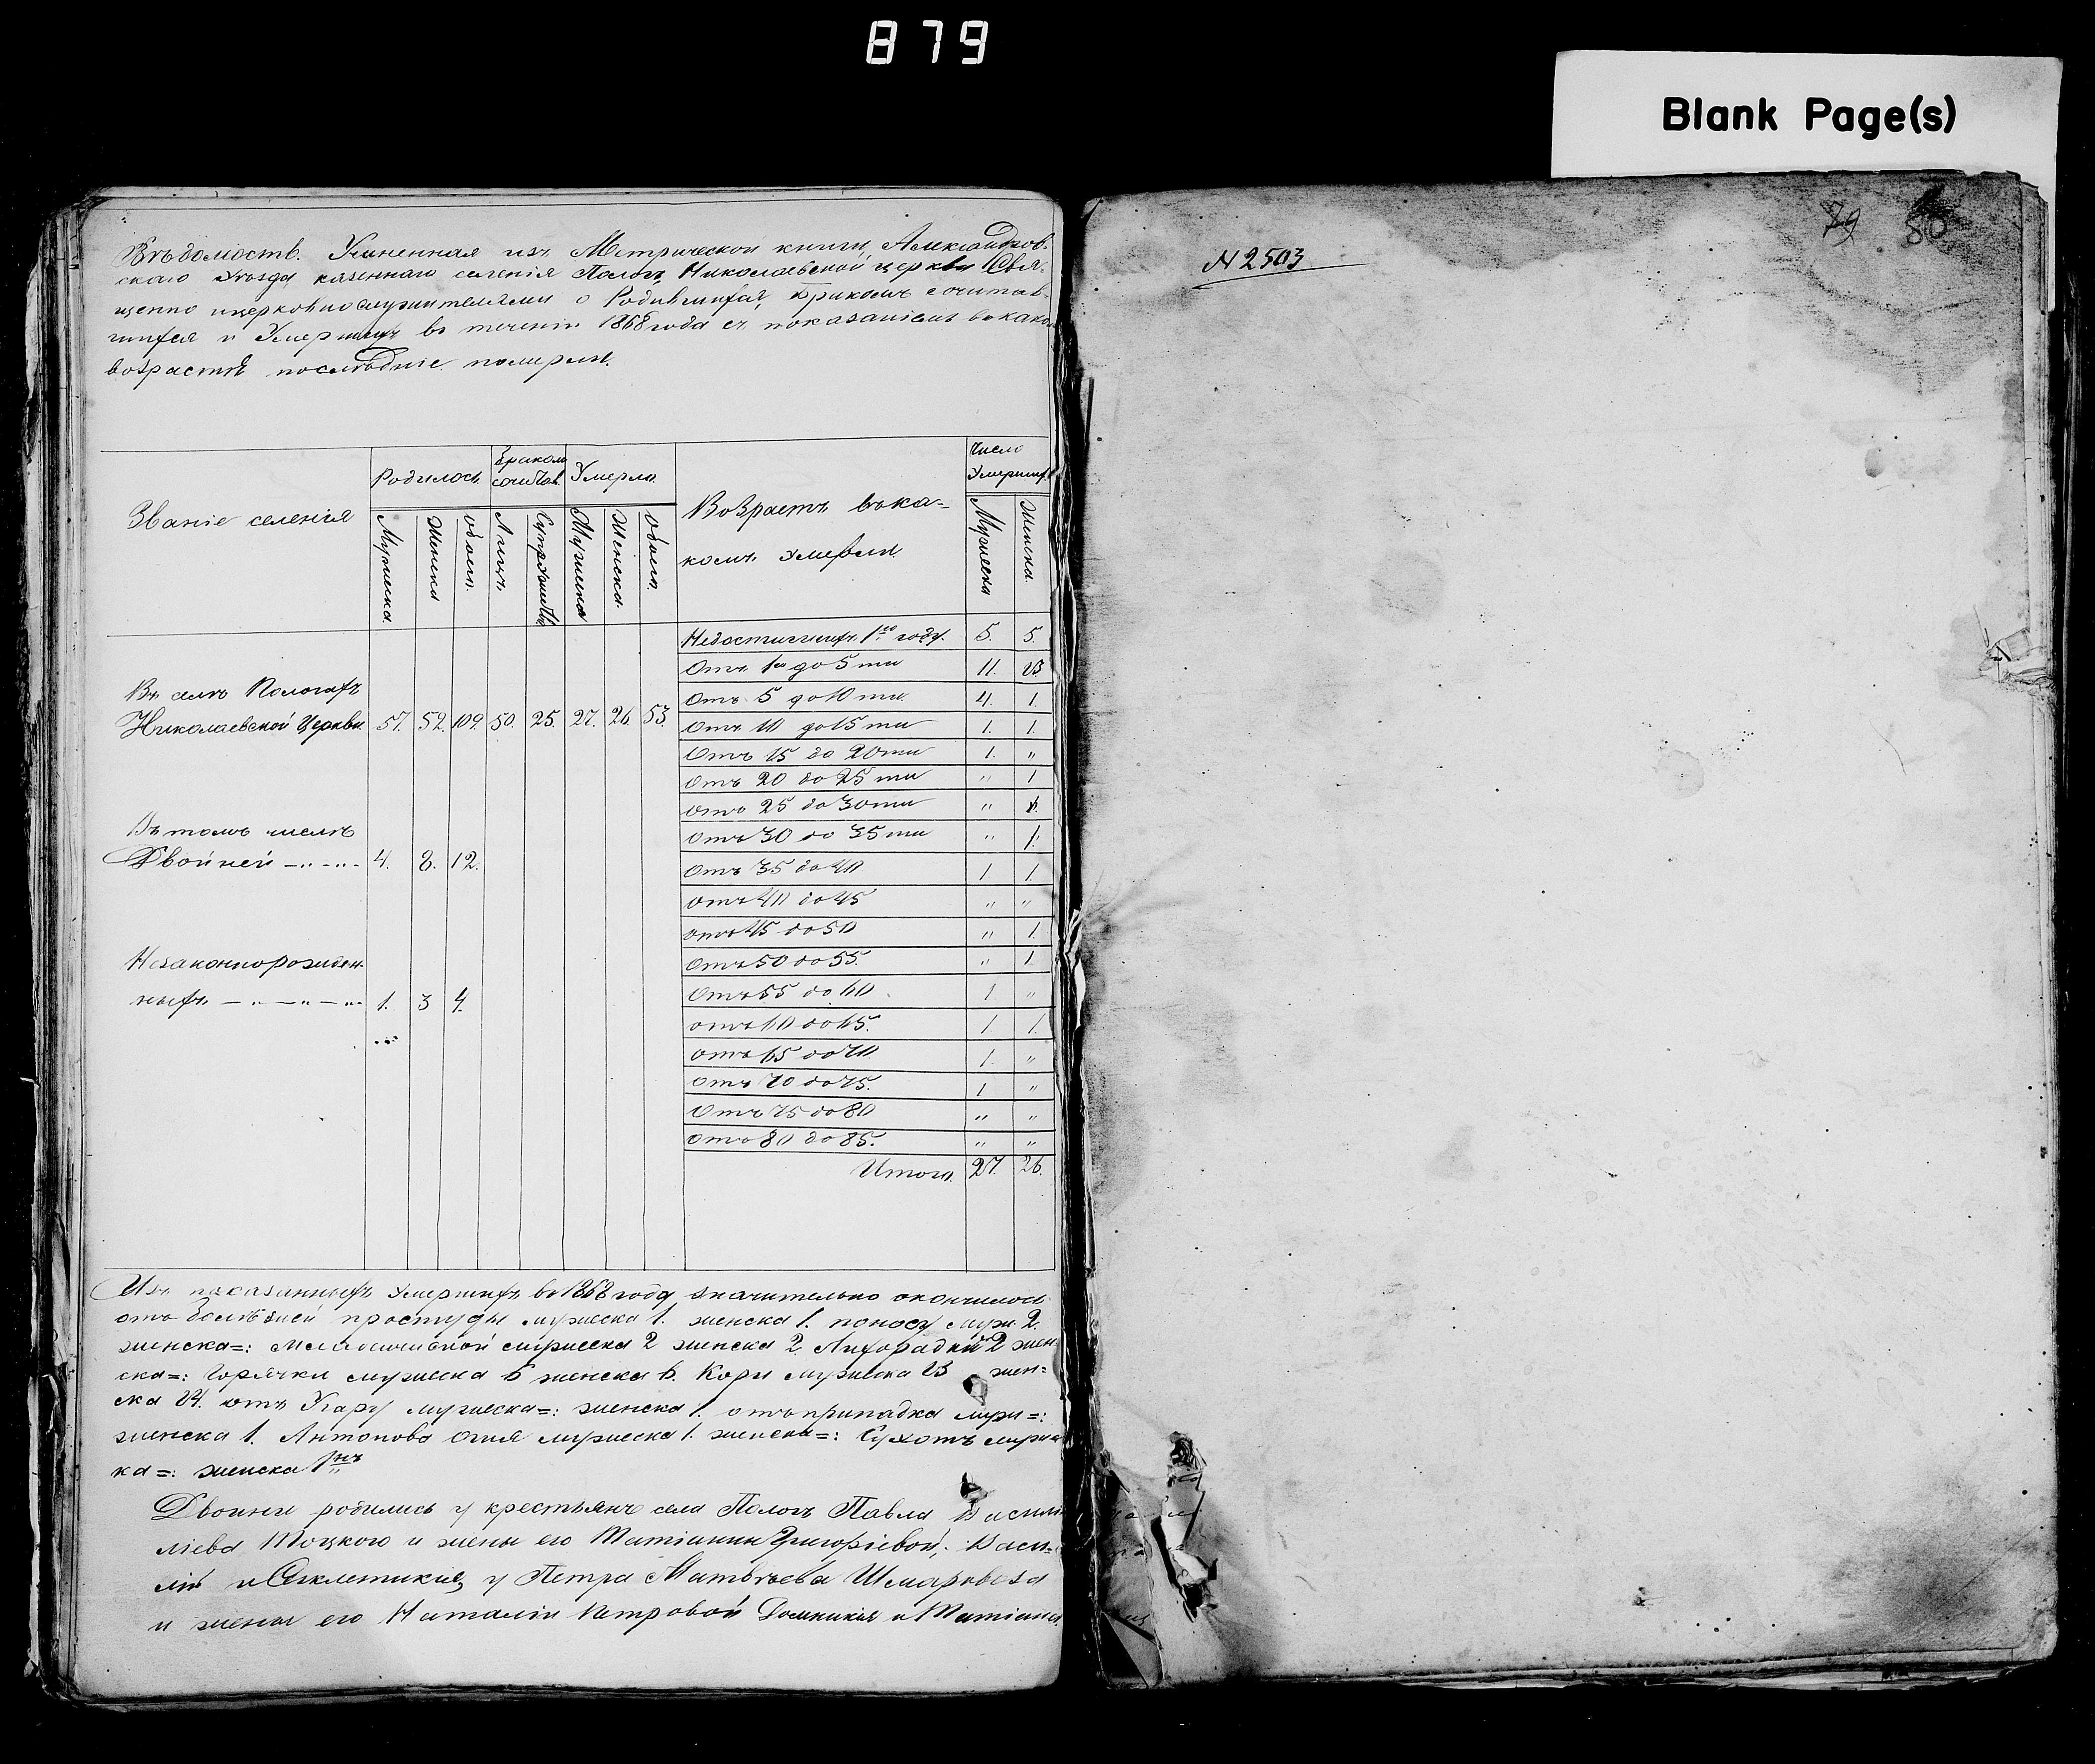 879
Blank Page(s)
Вѣдомость. Учиненная изъ Метрической книги, Александров-
скаго Уѣзда казеннаго селенія Пологъ, Николаевской церкви Свя-
щенно ицерковнослужителями о Родившихся, Бракомъ сочитав-
шихся и Умершихъ въ теченіи 1868 года съ показаніемъ вкаком
возрастѣ послѣдніе померли.
Званіе селенія
Родилось
Бракомъ сочитав.
Умерло.
Возрастъ въка-
комъ умерли.
Число Умершихъ
Мужеска. Женска обоего. Лицъ. Супружествъ Мужеска Женска. Обоего. Мужеска Женска.
Недостигшихъ 1го году. 5. 5.
Отъ 1го до 5 ти 11. 13
Въ селѣ Пологахъ
Отъ 5 до 10 ти 4. 1.
Николаевской Церкви 57. 52. 109. 50. 25. 27. 26. 53.
Отъ 10 до 15 ти 1. 1.
Отъ 15 до 20 ти 1. "
Отъ 20 до 25 ти " 1
Отъ 25 до 30 ти "
Въ томъ числѣ
Отъ 30 до 35 ти " 1.
Двойней 4. 8. 12.
Отъ 35 до 40 1 1.
отъ 40 до 45 " "
отъ 45 до 50 " 1.
Незаконнорожден-
Отъ 50 до 55. " 1
ныхъ 1. 3 4.
Отъ 55 до 60 1 "
отъ 60 до 65. 1 1.
отъ 65 до 70 1. "
Отъ 70 до 75. 1 "
Отъ 75 до 80 " "
Отъ 80 до 85. " "
Итого. 27. 26.
Изъ показанныхъ умершихъ въ 1868 году значительно окончилось
отъ болѣзней простуды мужеска 1. женска 1. поносу муж. 2.
женска=: мужеска 2 женска 2. Лихорадки 2 жен-
ска=: Горячки мужеска 6 женска 6. Кори мужеска 13 жен=
ска 14. отъ Угару мужеска=: женска 1. отъ припадка муж=:
женска 1. Антонова огня мужеска 1. женска=: Сухотъ мужес-
ка=: женска 1
Двойни родились у крестьянъ села Пологъ Павла Васи
ліева Тоцкого и жены его Татіании Григоріевой, Васи-
лій и Синклетикія, у Петра Матвѣева
и жены его Наталіи Петровой Домникія и Татіана.
N 2503
79
80